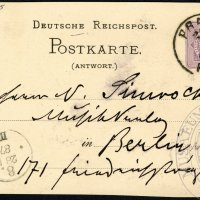 DEUTSCHE REICHSPOST.
POSTKARTE.
(ANTWORT.)
Herrn N. Simrock
Musikverlag
in Berlin
171 Friedrichstr